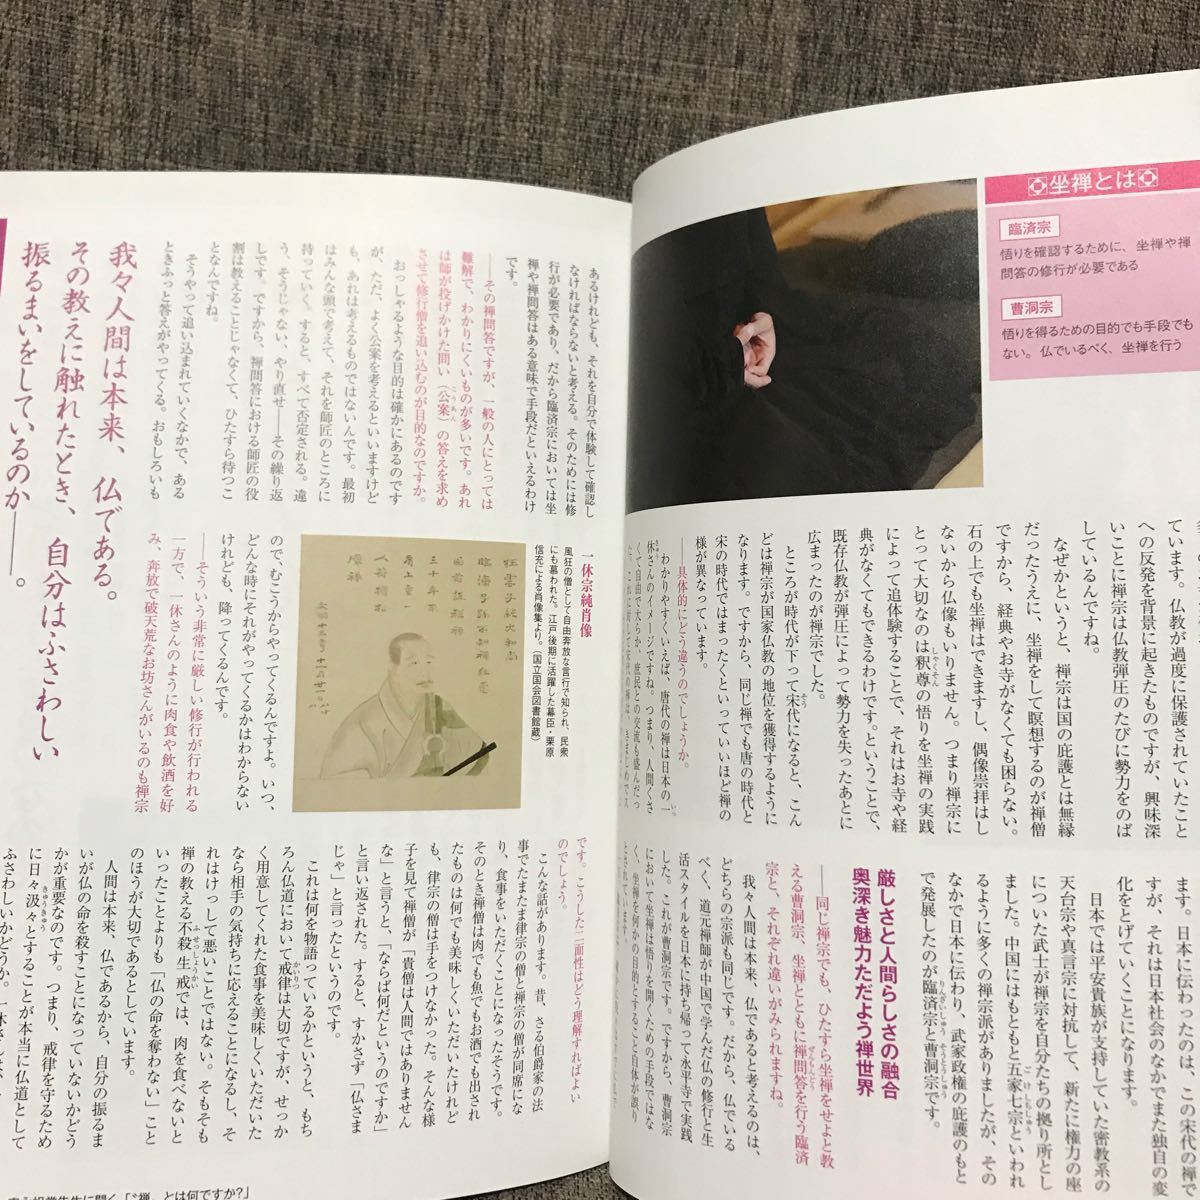 坐禅とは
臨済宗
悟りを確認するために、坐禅や禅
問答の修行が必要である
曹洞宗
悟りを得るための目的でも手段でも
ない。仏でいるべく、坐禅を行う
ています。仏教が過度に保護されていたこと
への反発を背景に起きたものですが、興味深
いことに禅宗は仏教弾圧のたびに勢力をのば
しているんですね。
なぜかというと、禅宗は国の庇護とは無縁
だったうえに、坐禅をして瞑想するのが禅僧
ですから、経典やお寺がなくても困らない。
石の上でも坐禅はできますし、偶像崇拝はし
ないから仏像もいりません。つまり禅宗に
とって大切なのは釈尊の悟りを坐禅の実践
によって追体験することで、それはお寺や経
典がなくてもできるわけです。ということで、
既存仏教が弾圧によって勢力を失ったあとに
広まったのが禅宗でした。
ところが時代が下って宋代になると、こん
どは禅宗が国家仏教の地位を獲得するように
なります。ですから、同じ禅でも唐の時代と
宋の時代ではまったくといっていいほど禅の
様が異なっています。
――具体的にどう違うのでしょうか。
わかりやすくいえば、唐代の禅は日本の一
休さんのイメージですね。つまり、人間くさ
くて自由で大らか、庶民との交流も盛んだっ
ます。日本に伝わったのは、この宋代の禅で
すが、それは日本社会のなかでまた独自の変
化をとげていくことになります。
日本では平安貴族が支持していた密教系の
天台宗や真言宗に対抗して、新たに権力の座
についた武士が禅宗を自分たちの拠り所とし
ました。中国にはもともと五家七宗といわれ
るように多くの禅宗派がありましたが、その
なかで日本に伝わり、武家政権の庇護のもと
で発展したのが臨済宗と曹洞宗です。
厳しさと人間らしさの融合
奥深き魅力ただよう禅世界
――同じ禅宗でも、ひたすら坐禅をせよと教
える曹洞宗、坐禅とともに禅問答を行う臨済
宗と、それぞれ違いがみられますね。
我々人間は本来、仏であると考えるのは、
どちらの宗派も同じです。だから、仏でいる
べく、道元禅師が中国で学んだ仏の修行と生
活スタイルを日本に持ち帰って永平寺で実践
した。これが曹洞宗です。ですから、曹洞宗
において坐禅は悟りを開くための手段ではな
く、坐禅を何かの目的とすること自体が誤り
とされています。
あるけれども、それを自分で体験して確認し
なければならないと考える。そのためには修
行が必要であり、だから臨済宗においては坐
禅や禅問答はある意味で手段だといえるわけ
です。
――その禅問答ですが、一般の人にとっては
難解で、わかりにくいものが多いです。あれ
は師が投げかけた問い（公案）の答えを求め
させて修行僧を追い込むのが目的なのですか。
おっしゃるような目的は確かにあるのです
が、ただ、よく公案を考えるといいますけど
も、あれは考えるものではないんです。最初
はみんな頭で考えて、それを師匠のところに
持っていく。すると、すべて否定される。違
う、そうじゃない、やり直せ――その繰り返
しです。ですから、禅問答における師匠の役
割は教えることじゃなくて、ひたすら待つこ
となんですね。
そうやって追い込まれていくなかで、ある
ときふっと答えがやってくる。おもしろいも
我々人間は本来、仏である。
その教えに触れたとき、自分はふさわしい
振るまいをしているのか――。
一休宗純肖像
風狂の僧として自由奔放な言行で知られ、民衆
にも慕われた。江戸後期に活躍した幕臣・栗原
信充による肖像集より。（国立国会図書館蔵）
ので、むこうからやってくるんですよ。いつ、
どんな時にそれがやってくるかはわからない
けれども、降ってくるんです。
――そういう非常に厳しい修行が行われる
一方で、一休さんのように肉食や飲酒を好
み、奔放で破天荒なお坊さんがいるのも禅宗
です。こうした二面性はどう理解すればよい
のでしょう。
こんな話があります。昔、さる伯爵家の法
事でたまたま律宗の僧と禅宗の僧が同席にな
り、食事をいただくことになったそうです。
そのとき禅僧は肉でも魚でもお酒でも出され
たものは何でも美味しくいただいたけれど
も、律宗の僧は手をつけなかった。そんな様
子を見て禅僧が「貴僧は人間ではありません
な」と言うと、「ならば何だというのですか」
と言い返された。すると、すかさず「仏さま
じゃ」と言ったというのです。
これは何を物語っているかというと、もち
ろん仏道において戒律は大切ですが、せっか
く用意してくれた食事を美味しくいただいた
なら相手の気持ちに応えることになるし、そ
れはけっして悪いことではない。そもそも
禅の教える不殺生戒では、肉を食べないと
いったことよりも「仏の命を奪わない」こと
のほうが大切であるとしています。
人間は本来、仏であるから、自分の振るま
いが仏の命を殺すことになっていないかどう
かが重要なのです。つまり、戒律を守るため
に日々汲々とすることが本当に仏道として
ふさわしいかどうか。
先生に聞く「“禅”とは何ですか？」